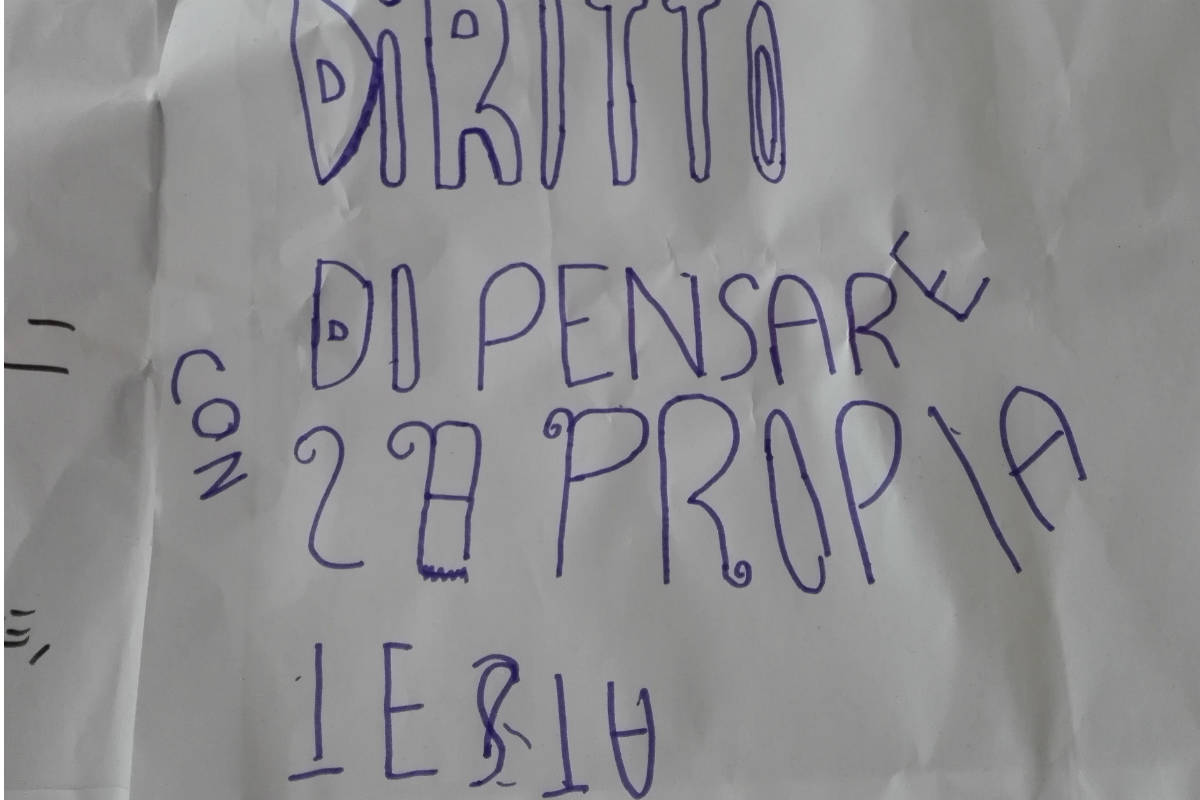 DIRITTO
DI PENSARE
CON
LA PROPIA
TESTA